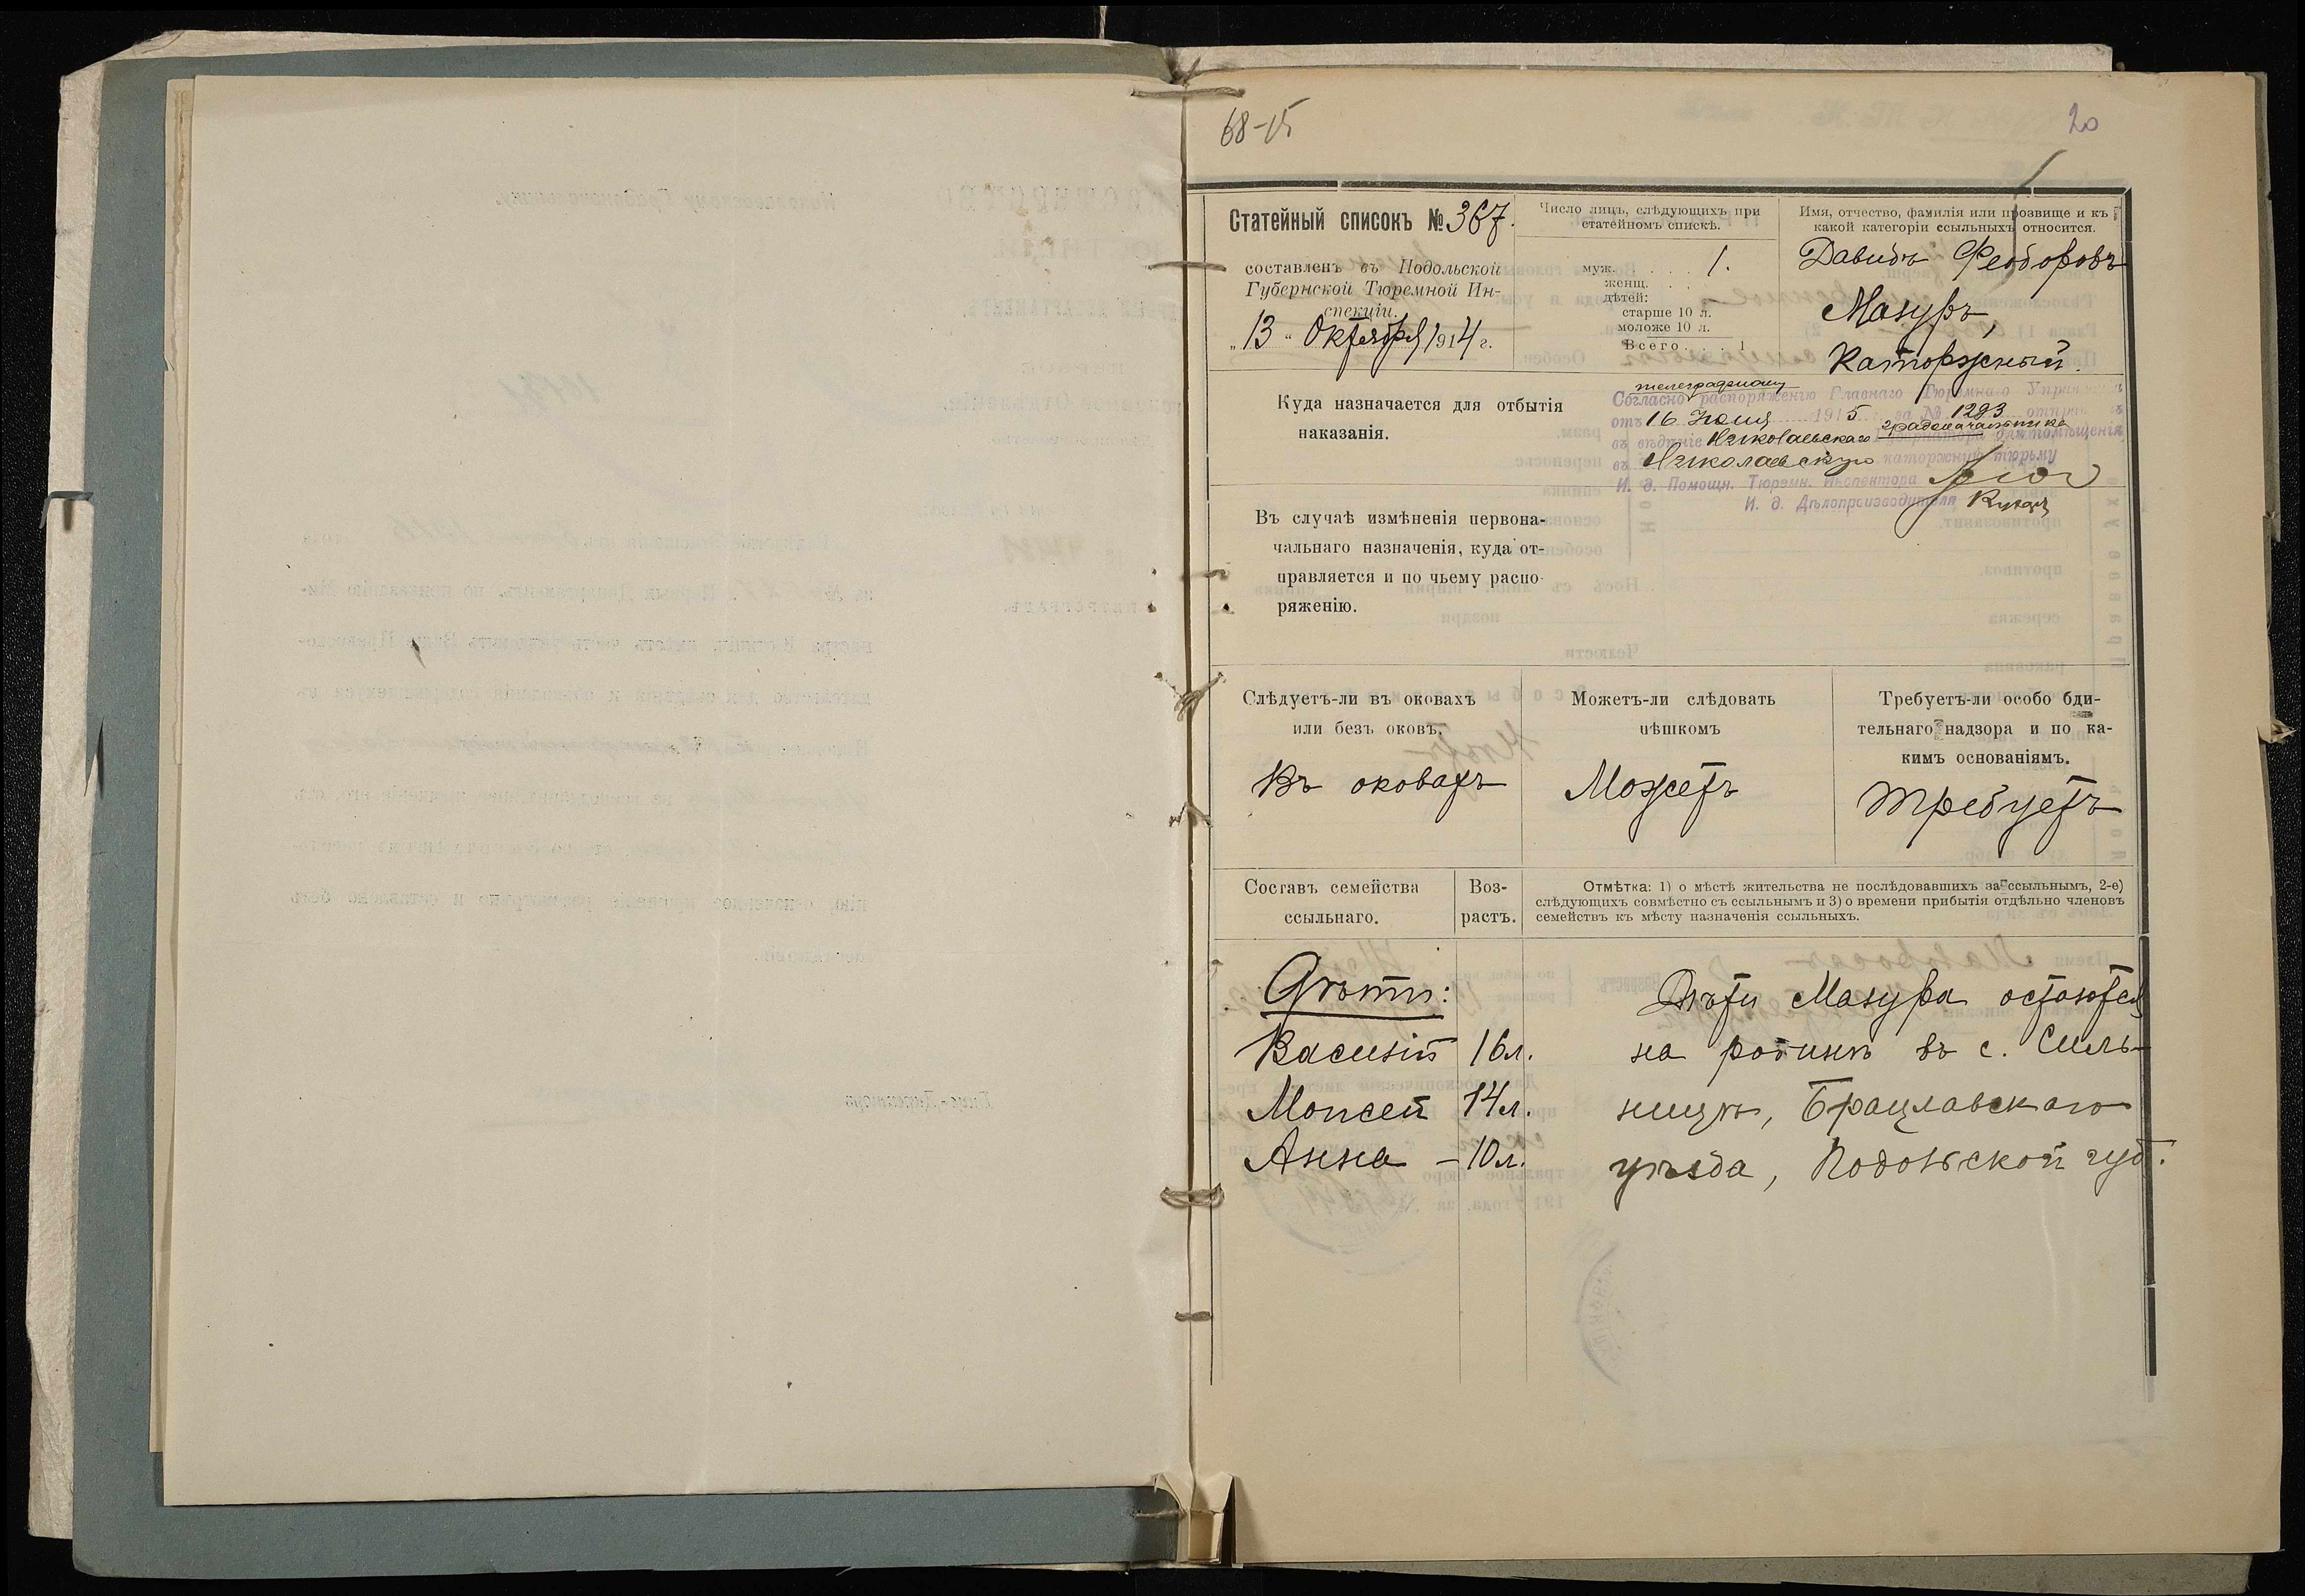 68-15
20
Статейный списокъ № 367.
составленъ въ Подольской
Губернской Тюремной Ин-
спекціи.
„13“ Октября 1914 г.
Число лицъ, слѣдующихъ при
статейномъ спискѣ.
муж. . . . . . 1.
женщ. . .
дѣтей:
старше 10 л.
моложе 10 л.
Всего . . . 1
Имя, отчество, фамилія или прозвище и къ
какой категоріи ссыльныхъ относится.
Давидъ Феодоровъ
Мазуръ,
Каторжный.
Куда назначается для отбытія
наказанія.
телеграфному
Согласно распоряженію Главнаго Тюремнаго
отъ 16 Іюня 1915 за № 1293
градоначальника
въ вѣдѣніе Николаевскаго для помѣщенія
въ Николаевскую каторжную тюрьму
И. д. Помощн. Тюремн. Инспектора
И. д. Дѣлопроизводителя
Въ случаѣ измѣненія первона-
чальнаго назначенія, куда от-
правляется и по чьему распо-
ряженію.
Слѣдуетъ-ли въ оковахъ
или безъ оковъ.
Въ оковахъ
Можетъ-ли слѣдовать
пѣшкомъ
Можетъ
Требуетъ-ли особо бди-
тельнаго надзора и по ка-
кимъ основаніямъ.
Требуетъ
Составъ семейства
ссыльнаго.
Воз-
растъ.
Отмѣтка: 1) о мѣстѣ жительства не послѣдовавшихъ за ссыльнымъ, 2-е)
слѣдующихъ совмѣстно съ ссыльнымъ и 3) о времени прибытія отдѣльно членовъ
семействъ къ мѣсту назначенія ссыльныхъ.
Дѣти:
Василій 16 л.
Моисей 14 л.
Анна – 10 л.
Дѣти Мазура остаются
на родинѣ въ с. Силь-
ницѣ, Брацлавскаго
уѣзда, Подольской губ.